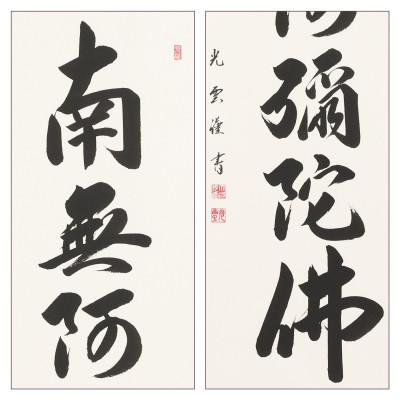 南無阿
阿彌陀佛
光雲謹書